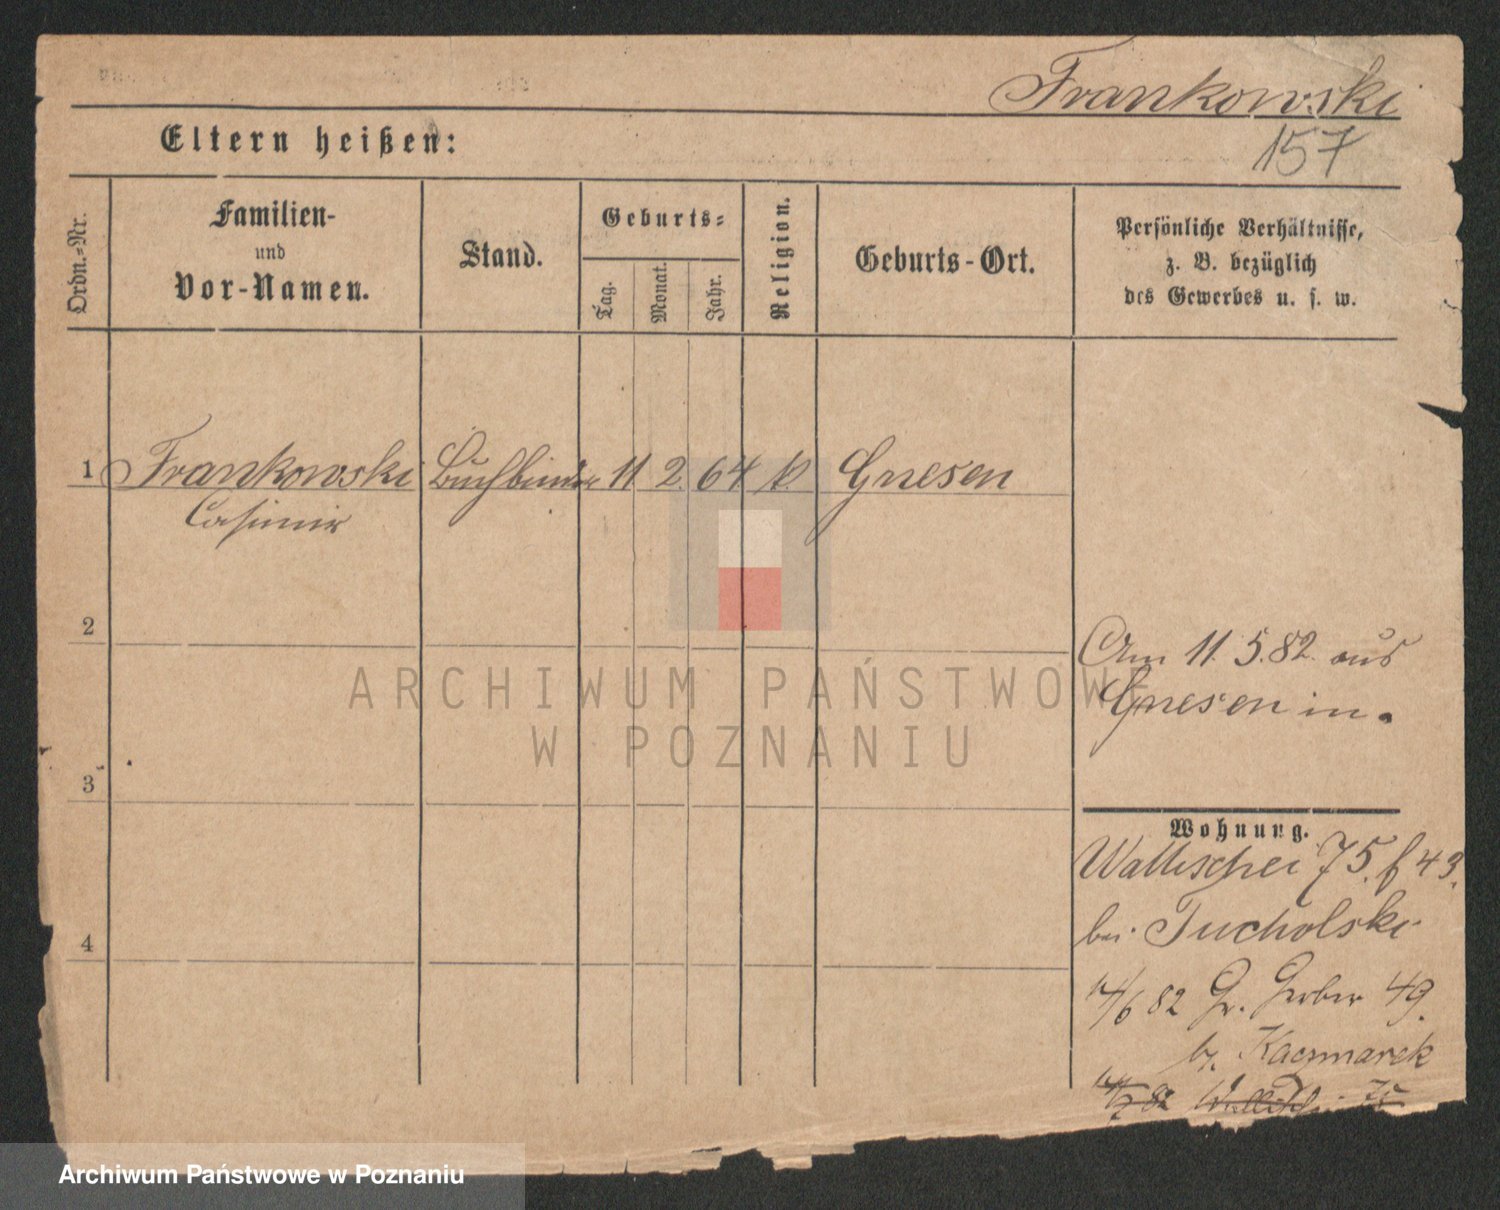 Frankowski
157
Eltern heißen:
Ordn.-Nr.
Familien-
und
Vor-Namen.
Stand.
Geburts-
Tag.
Monat.
Jahr.
Religion.
Geburts-Ort.
Persönliche Verhältnisse,
z. B. bezüglich
des Gewerbes u. s. w.
1 Frankowski Buchbinder 11 2. 64 k. Gnesen
Casimir
2
Am 11. 5. 82. aus
Gnesen in.
3
Wohnung.
Wallischei 75. f 43.
bei Tucholski
4
14/6 82 Gr. Gerber 49.
b. Kaczmarek
82 Wallischei 75
ARCHIWUM PAŃSTWOWE
W POZNANIU
Archiwum Państwowe w Poznaniu